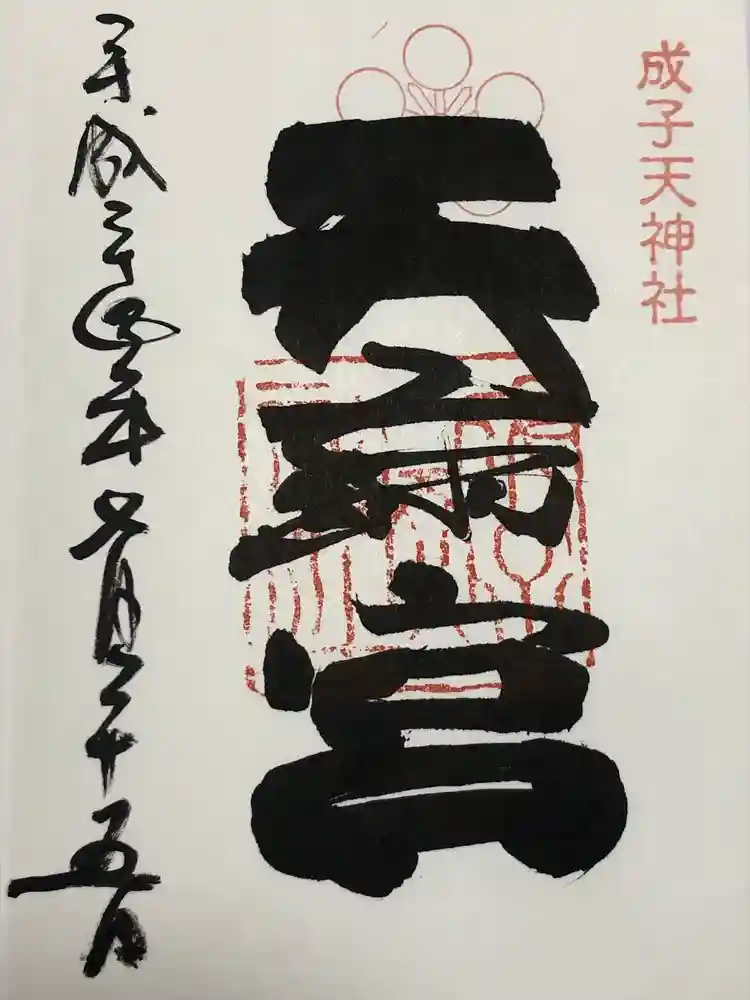 成子天神社
天満宮
平成 年 月二十五日